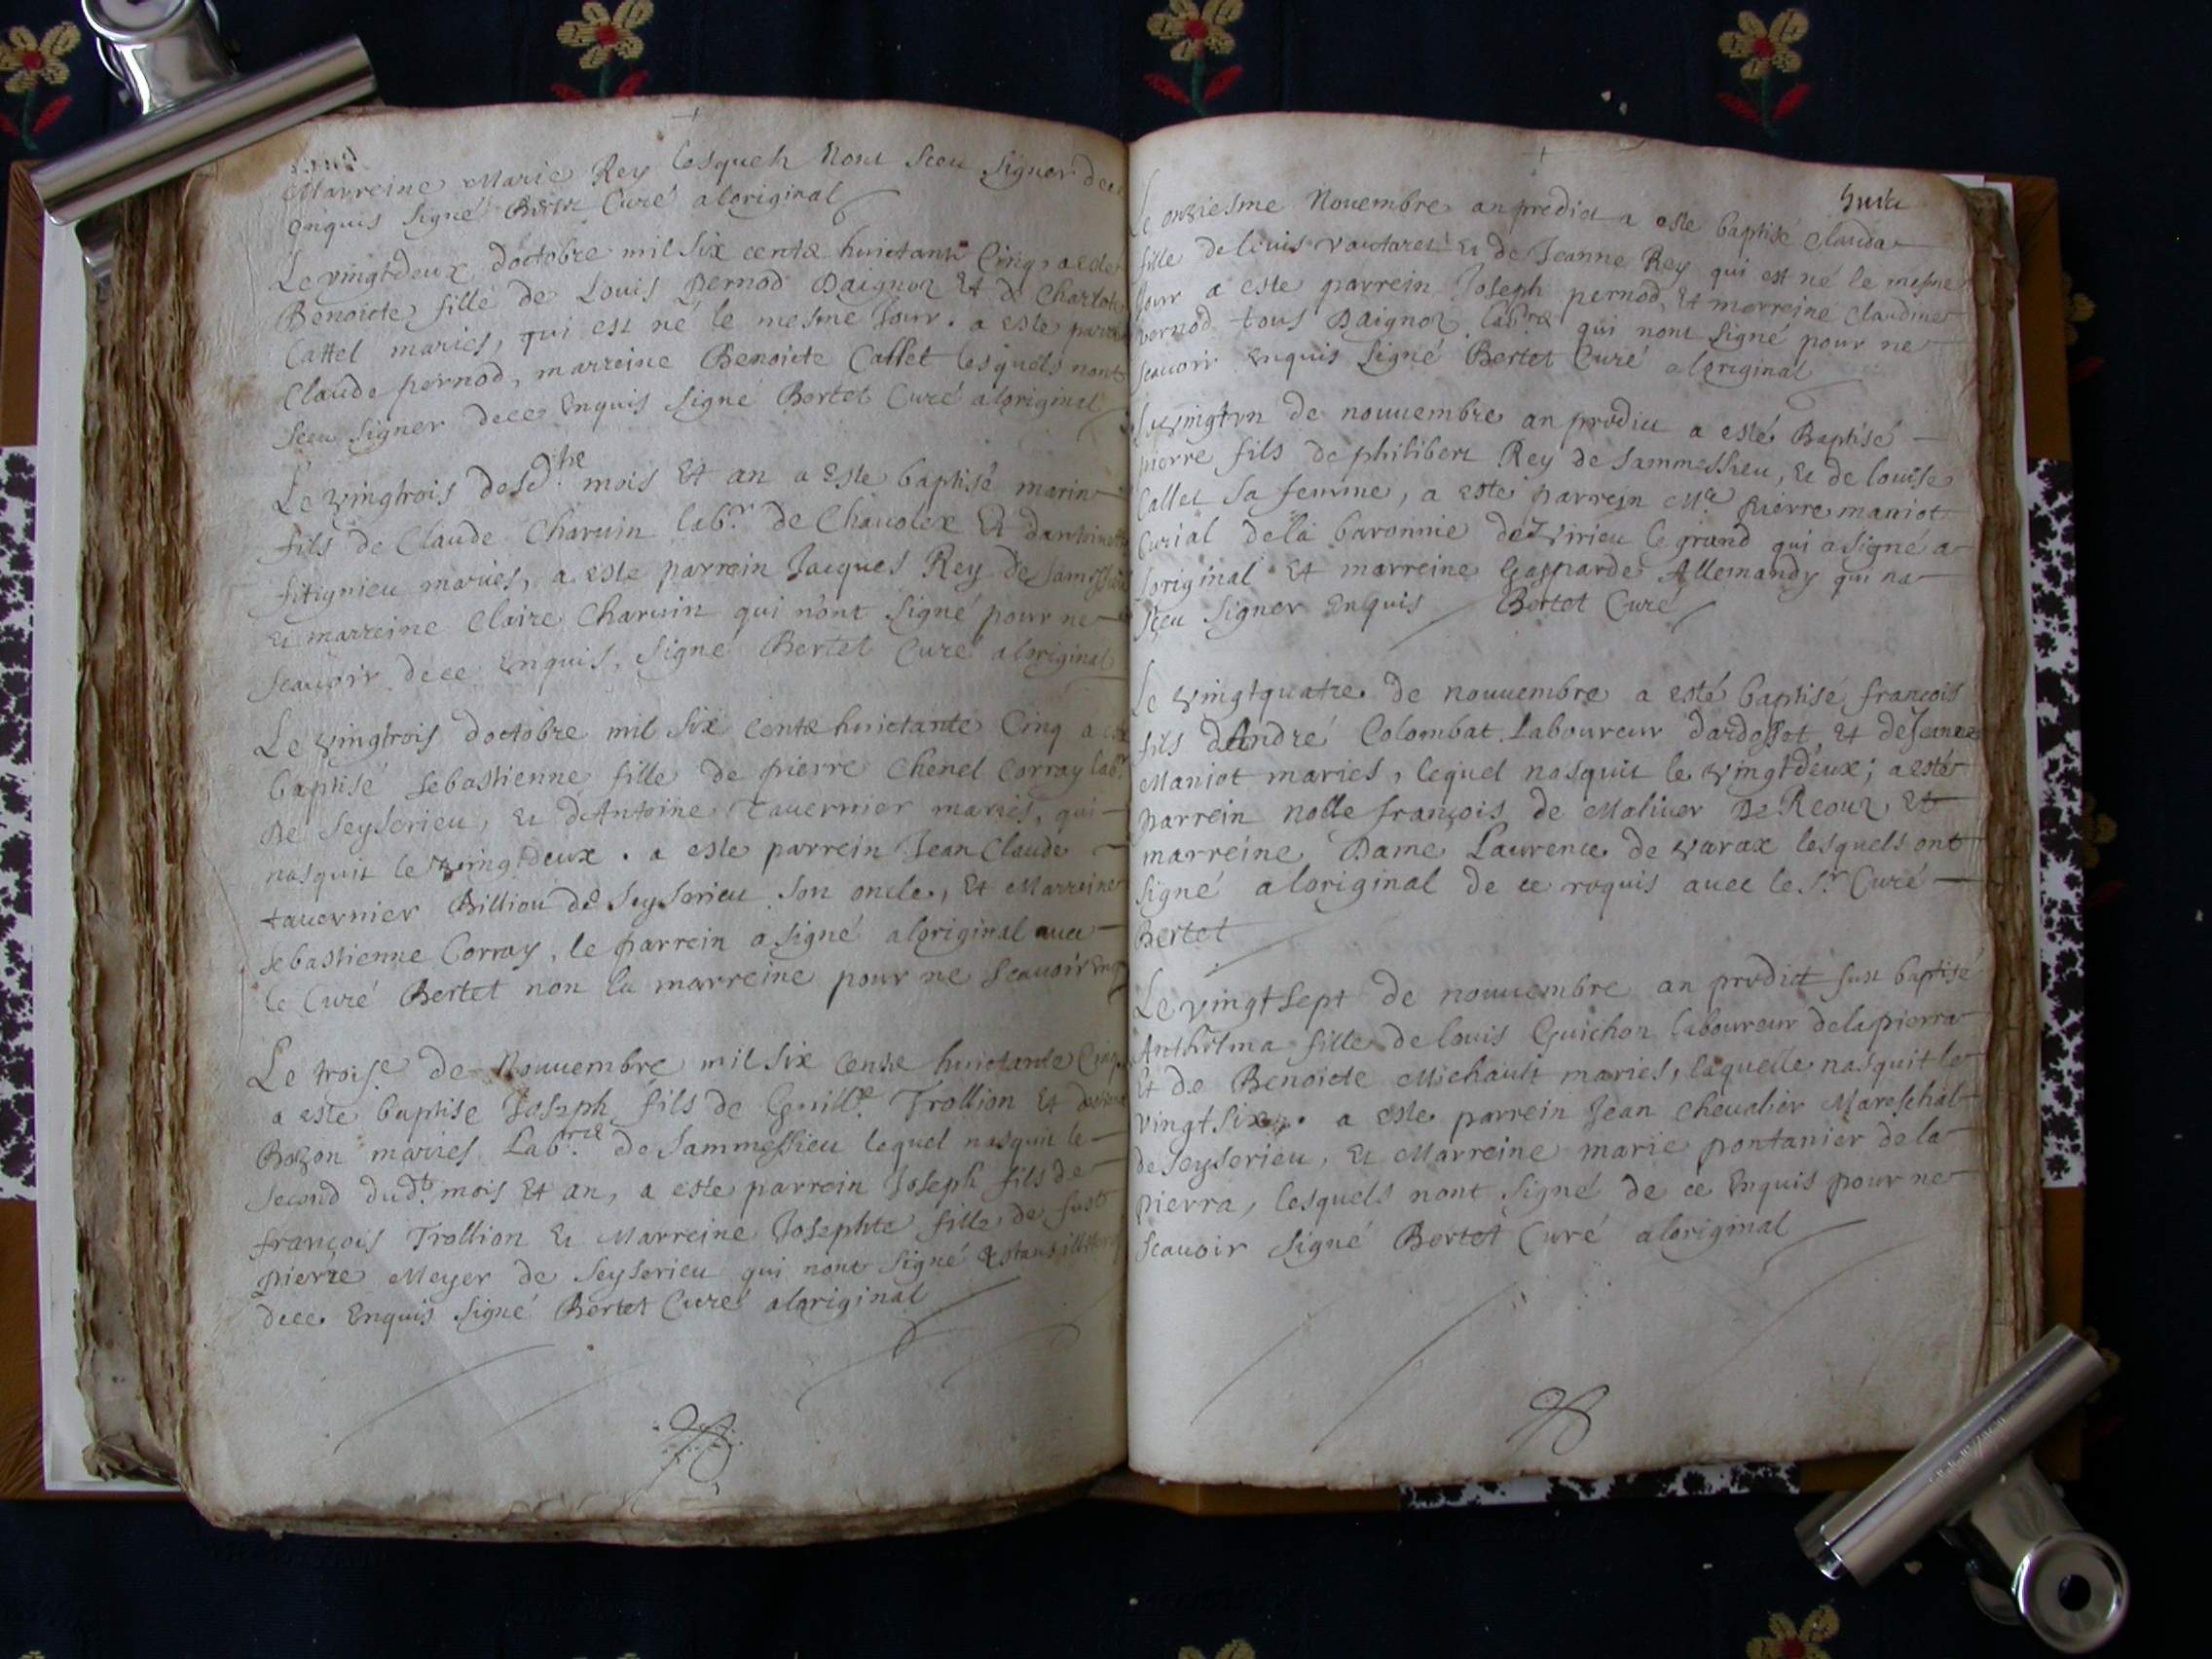 Marreine Marie Rey lesquels nont sceu signer dece
enquis signé Bertet Curé aloriginal
Le vingtdeux doctobre mil six cents huictante Cinq a este
Benoicte fille de Louis Pernod Daignoz Et de Charlote
Cattel mariés, qui est né le mesme Jour. a este parrein
Claude pernod, marreine Benoicte Callet lesquels nont
sceu signer dece Enquis signé Bertet Curé aloriginal
Le vingtrois desd. mois Et an a este baptisé marin
fils de Claude Charuin labr. de Chauolex Et dantoinette
fitignieu mariés, a este parrein Jacques Rey de
Et marreine Claire Charuin qui n'ont signé pour ne
scauoir dece enquis, signé Bertet Curé aloriginal
Le vingtrois doctobre mil six cents huictante Cinq a este
baptisé sebastienne fille de pierre Chenel Corray labr.
De Seyserieu, Et dAntoine Tauernier mariés, qui
nasquit le vingtdeux. a este parrein Jean Claude
tauernier Billiou de Seyserieu son oncle, Et Marreine
sebastienne Corray, le parrein a signé aloriginal auec
le Curé Bertet non la marreine pour ne scauoir enq
Le troise de Nouuembre mil six Cents huictante Cinq
a este baptise Joseph fils de Guille Trollion Et
Bozon mariés Labrs de Sammessieu lequel nasquit le
second dudt. mois Et an, a este parrein Joseph fils de
françois Trollion Et Marreine Josephte fille de fust
pierre Meyer de Seyserieu qui nont signé Estans
dece. Enquis signé Bertet Curé aloriginal
Suitte
Le onziesme Nouembre an predict a este baptisé Clauda
fille de louis vautaret Et de Jeanne Rey qui est né le mesme
Jour a este parrein Joseph pernod, Et marreine Claudine
pernod tous Daignoz labrs qui nont signé pour ne
scauoir enquis signé Bertet Curé aloriginal
Le vingtvn de nouuembre an predict a esté Baptisé
pierre fils de philibert Rey de Sammessieu, Et de louise
Callet sa femme, a este parrein Mr. pierre maniot
Curial dela baronnie de Virieu le grand qui a signé a
loriginal Et marreine Gasparde Allemandy qui na
sceu signer enquis Bertet Curé
Le vingtquatre de nouuembre a esté baptisé françois
fils dAndré Colombat Laboureur dardosset Et de Jeanne
Maniot mariés, lequel nasquit le vingtdeux; a esté
parrein noble françois de Moliuer De Reour Et
marreine Dame Laurence de varax lesquels ont
signé aloriginal de ce requis auec le Sr. Curé
Bertet
Le vingtsept de nouuembre an predict fust baptisé
Anthelma fille de louis Guichon laboureur dela pierra
Et de Benoicte Michault mariés, laquelle nasquit le
vingtsix. a este parrein Jean Chevalier Mareschal
de Seyserieu, Et Marreine marie pontanier de la
pierra, lesquels nont signé de ce Enquis pour ne
scauoir signé Bertet Curé aloriginal